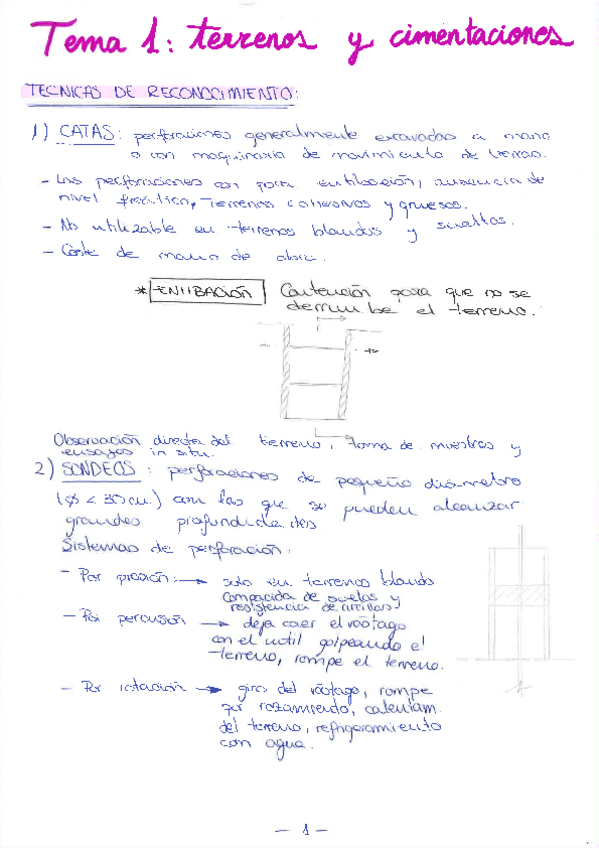 Tema 1: terrenos y cimentaciones
TECNICAS DE RECONOCIMIENTO:
1) CATAS: perforaciones generalmente excavadas a mano
o con maquinaria de movimiento de tierras.
- Las perforaciones con poca entibación, ausencia de
nivel freático, Terrenos cohesivos y gruesos.
- No utilizable en terrenos blandos y sueltos.
- Coste de mano de obra.
* ENTIBACIÓN Contención para que no se
derrumbe el terreno.
Observación directa del terreno, Toma de muestras y
ensayos in situ.
2) SONDEOS: perforaciones de pequeño diámetro
(ø < 30cm.) con las que se pueden alcanzar
grandes profundidades
Sistemas de perforación:
- Por presión: → solo en terrenos blandos
compacida de suelos y
resistencia de
- Por percusión → deja caer el vástago
con el util golpeando el
terreno, rompe el terreno.
- Por rotación → giro del vástago, rompe
por rozamiento, calentam.
del terreno, refrigeramiento
con agua.
- 1 -